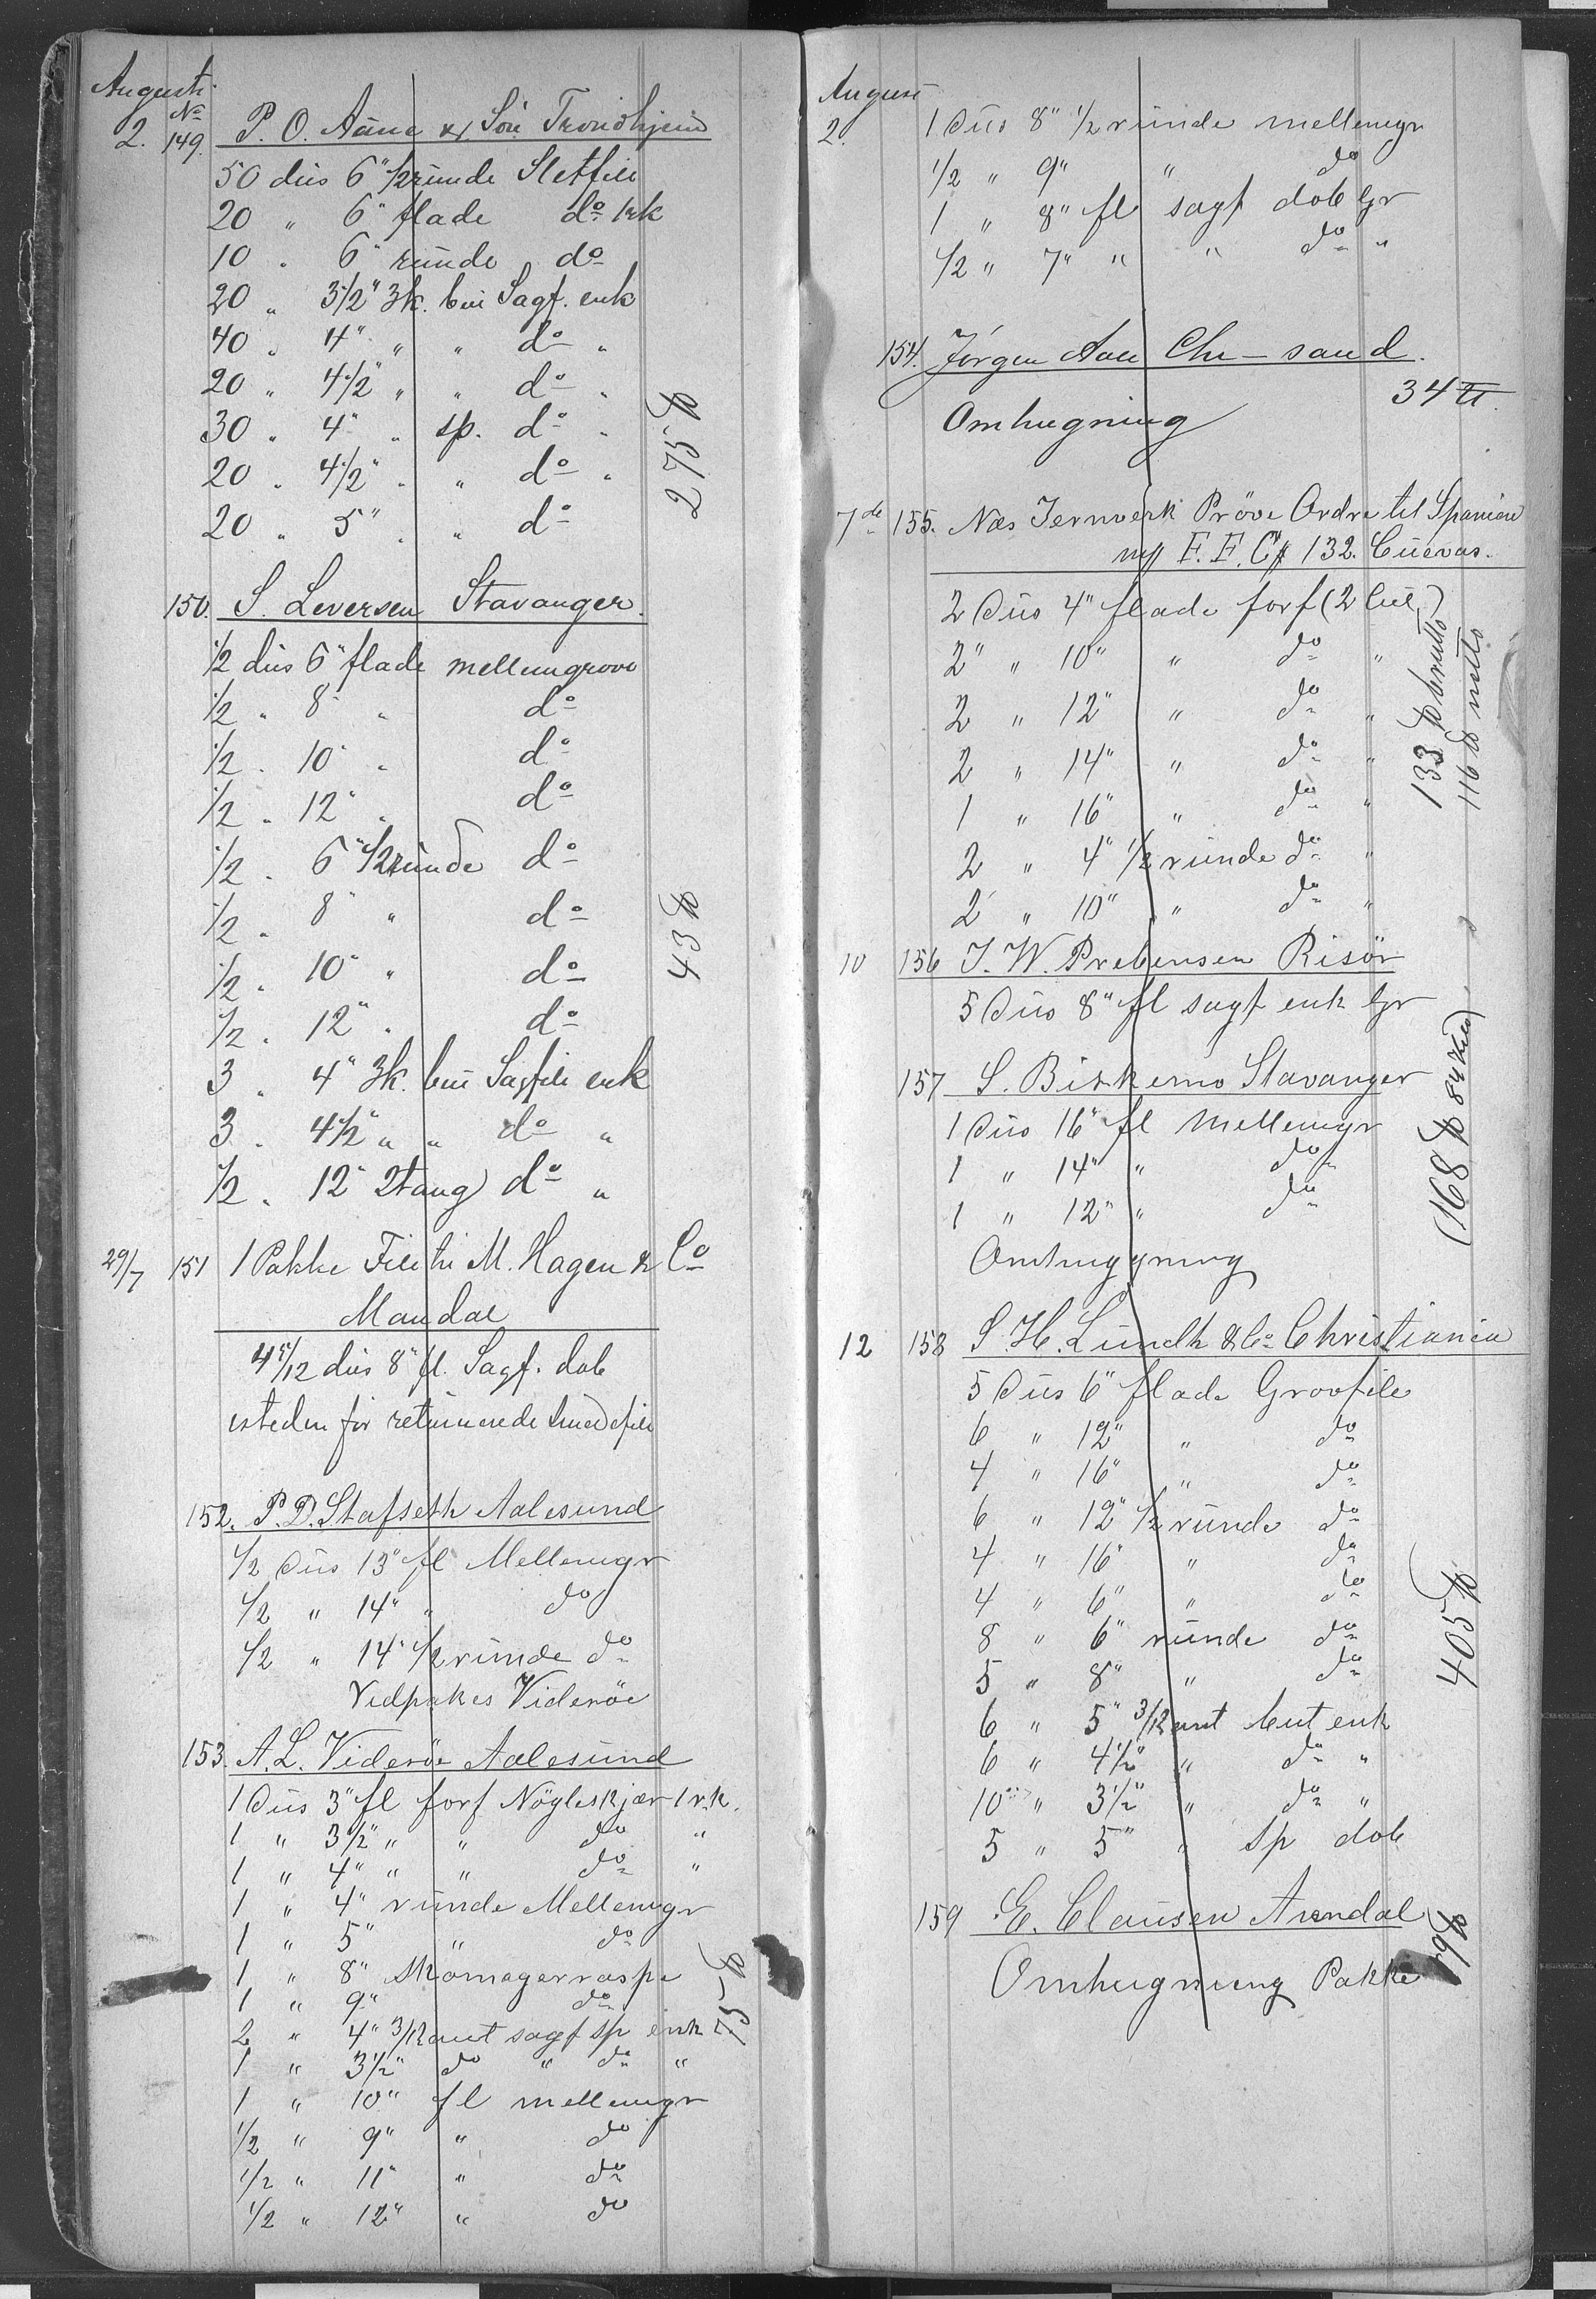 August
No
2. 149. P. O. Aune & Sön Trondhjem
50 dus 6" 1/2 runde Sletfile
20 " 6" flade do 1rk
10 " 6" runde do
20 " 3 1/2" 3k. bui Sagf. enk
40 " 4" " " do "
20 " 4 1/2" " " do "
30 " 4" " sp. do "
20 " 4 1/2" " " do "
20 " 5" " " do
275 ℔
150. S. Leversen Stavanger.
1/2 dus 6" flade mellemgrove
1/2 " 8" " do
1/2 " 10" " do
1/2 " 12" " do
1/2 " 6" 1/2 runde do
1/2 " 8" " do
1/2 " 10" " do
1/2 " 12" " do
3 " 4" 3k. bui Sagfile enk
3 " 4 1/2 " " do "
1/2 " 12" 2tang do "
43 ℔
29/7 151 1 Pakke File til M. Hagen & Co
Mandal
4 5/12 dus 8" fl. Sagf. dob
isteden for returnerede
152. P. D. Stafseth Aalesund
1/2 Dus 13" fl Mellemgr
1/2 " 14" " do
1/2 " 14" 1/2 runde do
Vedpakes Videröe
153. A. L. Videröe Aalesund
1 Dus 3" fl forf Nögleskjær 1 r.k.
1 " 3 1/2" " " do "
1 " 4" " " do "
1 " 4" runde Mellemgr
1 " 5" " do
1 " 8" Skomagerraspe
1 " 9" do
2 " 4" 3/Kant sagf sp enk
1 " 3 1/2" do " do "
1 " 10" fl mellemgr
1/2 " 9" " do
1/2 " 11" " do
1/2 " 12" " do
75 ℔
August
2. 1 Dus 8" 1/2 runde mellemgr
1/2 " 9" " do
1 " 8" fl sagf dob Gr
1/2 " 7" " " do "
154. Jörgen Aall Chr-sand.
34 ℔.
Omhugning
7de 155. Næs Jernverk Pröve Ordre til Spanien
mrk F. F. C# 132. Cuevas.
2 Dus 4" flade forf (2 Cut)
2" " 10" " do "
2 " 12" " do "
2 " 14" " do "
1 " 16" " do "
2 " 4" 1/2 runde do "
2 " 10" " do "
133 ℔ brutto
116 ℔ netto
10 156 J. W. Prebensen Risör
5 Dus 8" fl sagf enk Gr
157 S. Birkemo Stavanger
1 Dus 16" fl mellemgr
1 " 14" " do
1 " 12" " do
Omhuggning
(168 ℔ 84 Kilo)
12 158 S. H. Lundh & Co Christiania
5 Dus 6" flade Groofile
6 " 12" " do
4 " 16" " do
6 " 12" 1/2 runde do
4 " 16" " do
4 " 6" " do
8 " 6" runde do
5 " 8" " do
6 " 5" 3/Kant but enk
6 " 4 1/2" " do "
10 " 3 1/2" " do "
5 " 5" " Sp dob
405 ℔
159 E. Clausen Arendal
Omhugning Pakke